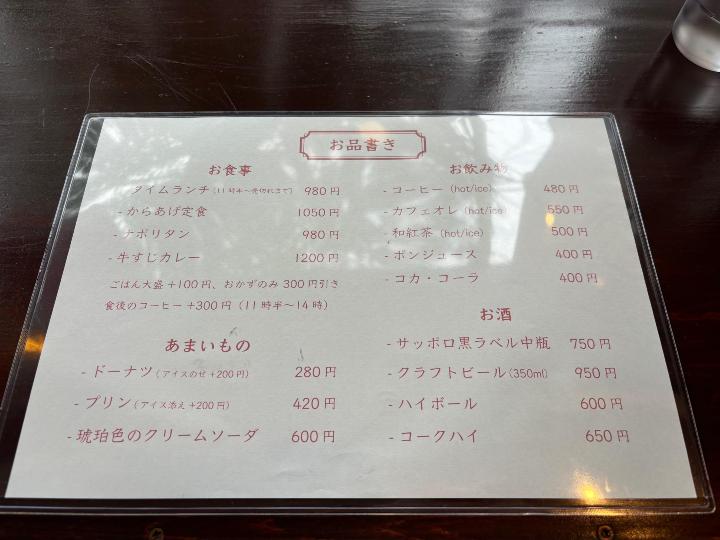 お品書き
お食事
タイムランチ(11時半〜売切れまで) 980円
- からあげ定食 1050円
- ナポリタン 980円
- 牛すじカレー 1200円
ごはん大盛 +100円、おかずのみ 300円引き
食後のコーヒー +300円 (11時半〜14時)
あまいもの
- ドーナツ(アイスのせ +200円) 280円
- プリン(アイス添え +200円) 420円
- 琥珀色のクリームソーダ 600円
お飲み物
- コーヒー (hot/ice) 480円
- カフェオレ (hot/ice) 550円
- 和紅茶 (hot/ice) 500円
- ポンジュース 400円
- コカ・コーラ 400円
お酒
- サッポロ黒ラベル中瓶 750円
- クラフトビール(350ml) 950円
- ハイボール 600円
- コークハイ 650円